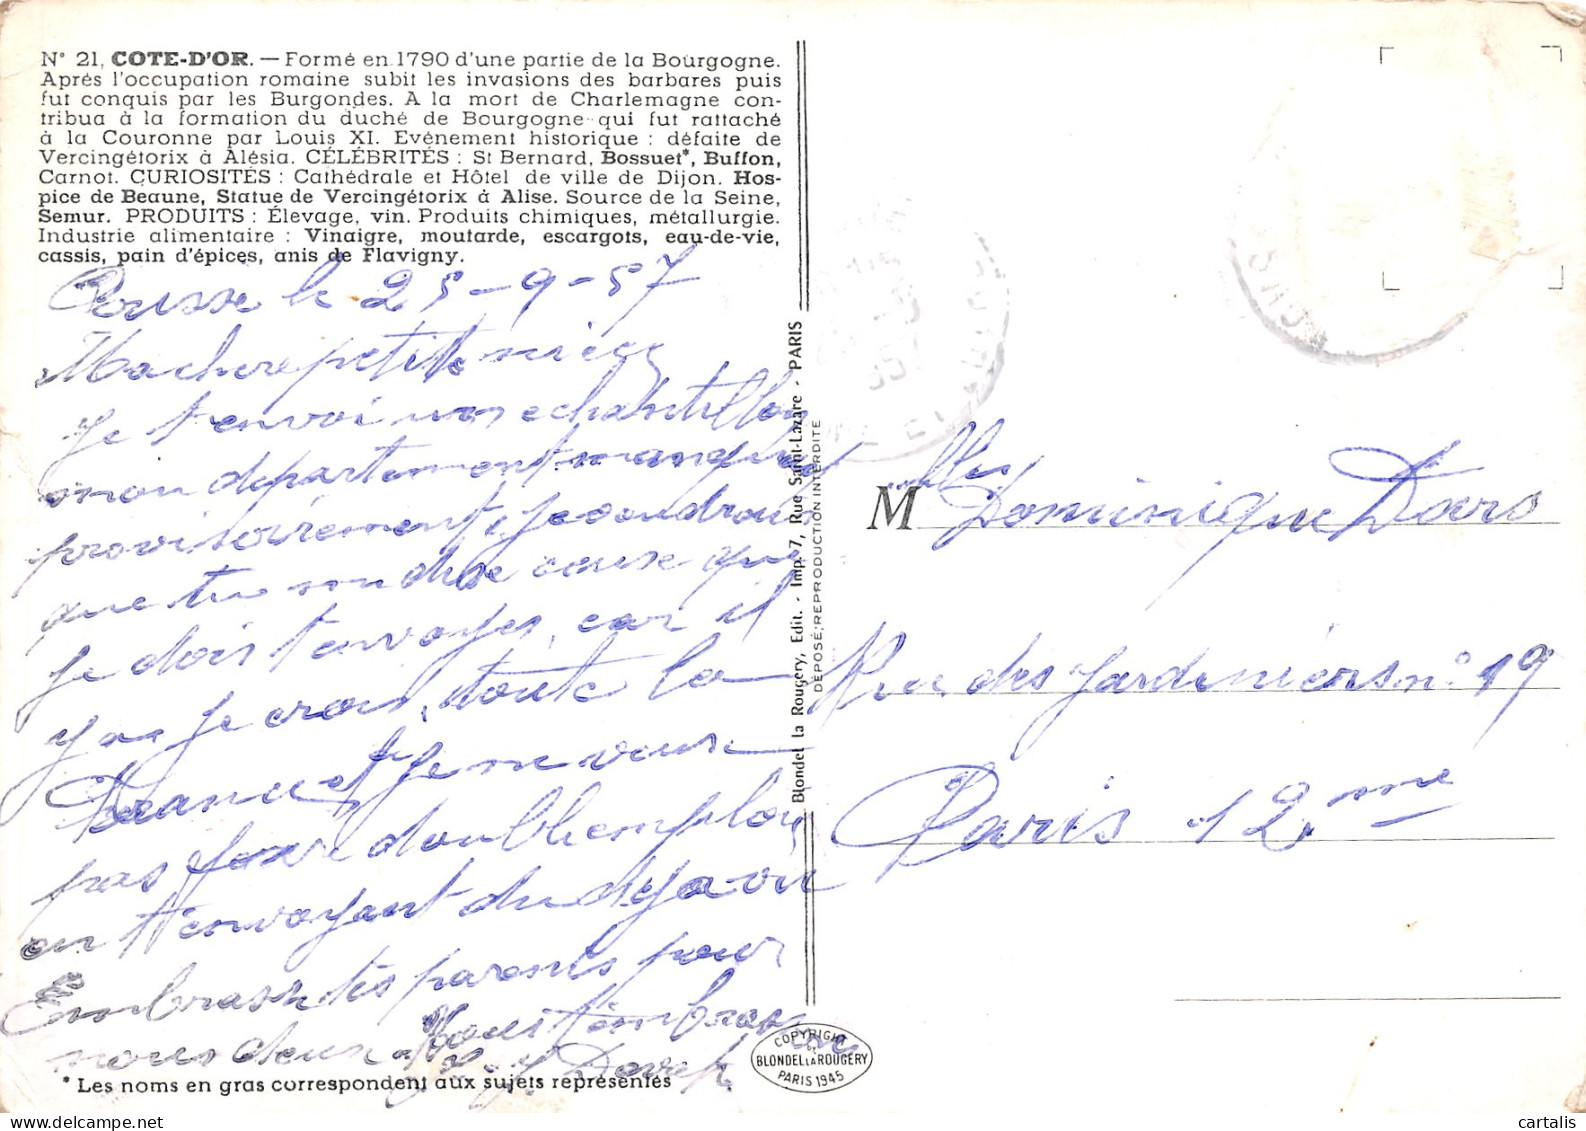 N° 21, COTE-D'OR. — Formé en 1790 d'une partie de la Bourgogne.
Après l'occupation romaine subit les invasions des barbares puis
fut conquis par les Burgondes. A la mort de Charlemagne con-
tribua à la formation du duché de Bourgogne qui fut rattaché
à la Couronne par Louis XI. Evénement historique : défaite de
Vercingétorix à Alésia. CÉLÉBRITÉS : St Bernard, Bossuet*, Buffon,
Carnot. CURIOSITÉS : Cathédrale et Hôtel de ville de Dijon. Hos-
pice de Beaune, Statue de Vercingétorix à Alise. Source de la Seine,
Semur. PRODUITS : Élevage, vin. Produits chimiques, métallurgie.
Industrie alimentaire : Vinaigre, moutarde, escargots, eau-de-vie,
cassis, pain d'épices, anis de Flavigny.
le 25-9-57
Ma chere petite niece
je t'envoi un echantillon
mon departement manquant
provisoirement, je voudrais
que tu me dise ceuse que
je dois t'envoyer, car il
y a je crois, toute la
France et je ne veux
pas faire double emploi
en t'envoyant du deja vu
Embrasse tes parents pour
nous deux Nous t'embrassons
* Les noms en gras correspondent aux sujets représentés
Blondel la Rougery, Edit. - Imp. 7, Rue Saint-Lazare - PARIS
DÉPOSÉ; REPRODUCTION INTERDITE
COPYRIGHT
BY
BLONDEL LA ROUGERY
PARIS 1945
Mlle Dominique
Rue des Jardiniers n° 19
Paris 12me
cartalis